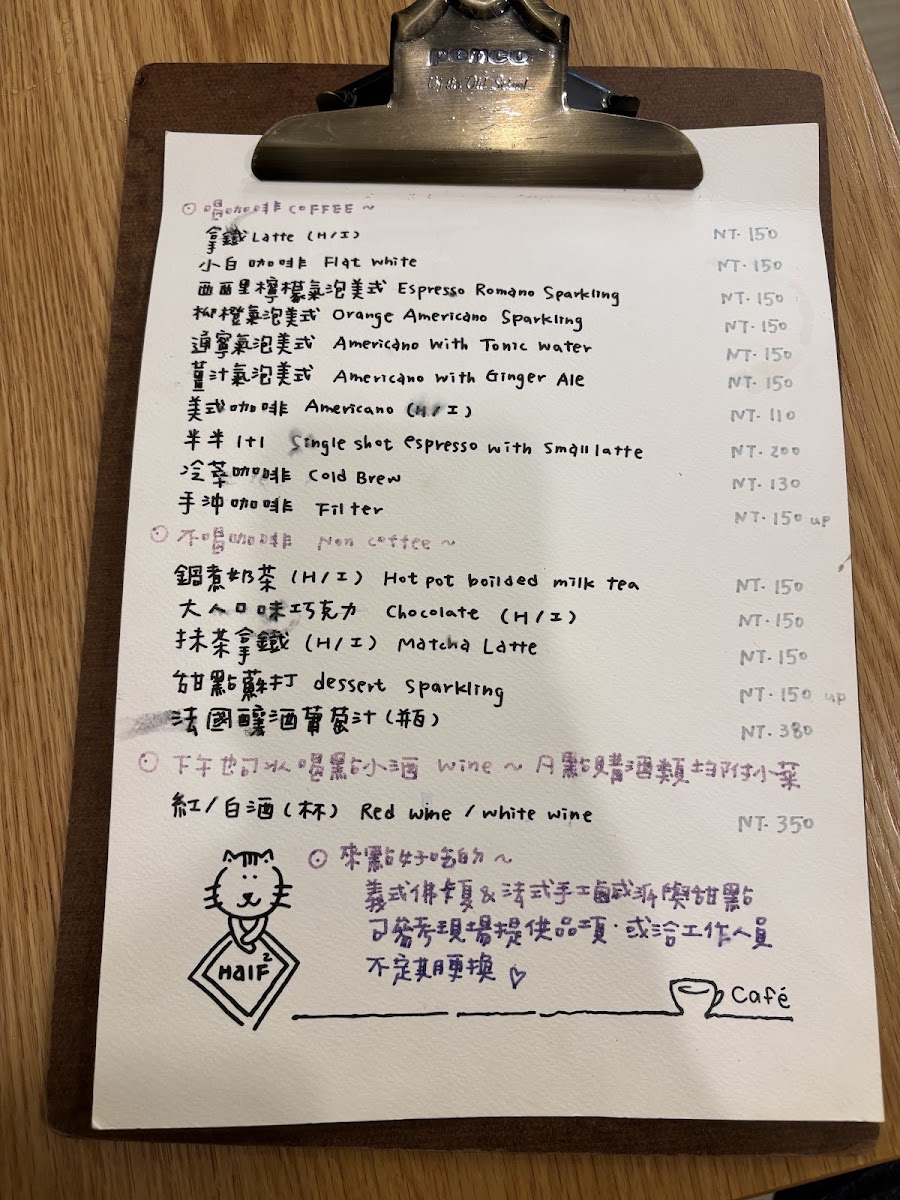 penco
Of the Old School
喝咖啡 COFFEE ~
拿鐵 Latte (H/I) NT. 150
小白咖啡 Flat white NT. 150
西西里檸檬氣泡美式 Espresso Romano Sparkling NT. 150
柳橙氣泡美式 Orange Americano Sparkling NT. 150
通寧氣泡美式 Americano with Tonic water NT. 150
薑汁氣泡美式 Americano with Ginger Ale NT. 150
美式咖啡 Americano (H/I) NT. 110
半半 1+1 Single shot espresso with small latte NT. 200
冷萃咖啡 Cold Brew NT. 130
手沖咖啡 Filter NT. 150 up
不喝咖啡 Non coffee ~
鍋煮奶茶 (H/I) Hot pot boilded milk tea NT. 150
大人口味巧克力 Chocolate (H/I) NT. 150
抹茶拿鐵 (H/I) Matcha Latte NT. 150
甜點蘇打 dessert sparkling NT. 150 up
法國釀酒葡萄汁 (瓶) NT. 380
下午也可以喝點小酒 wine ~ 凡點購酒類均附小菜
紅/白酒 (杯) Red wine / white wine NT. 350
來點好吃的 ~
義式佛卡夏 & 法式手工鹹派與甜點
可參考現場提供品項. 或洽工作人員
不定期更換 ♡
Half²
Café